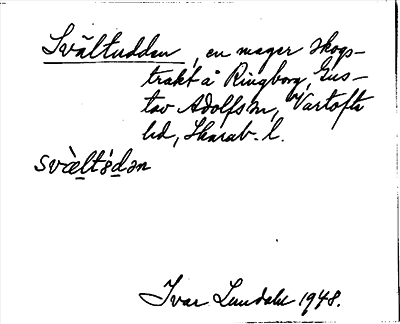 Svältudden, en mager skogs-
trakt å Ringborg, Gus-
tav Adolfs sn, Vartofta
hd, Skarab. l.
svæ̀ltèdən
Ivar Lundahl 1948.